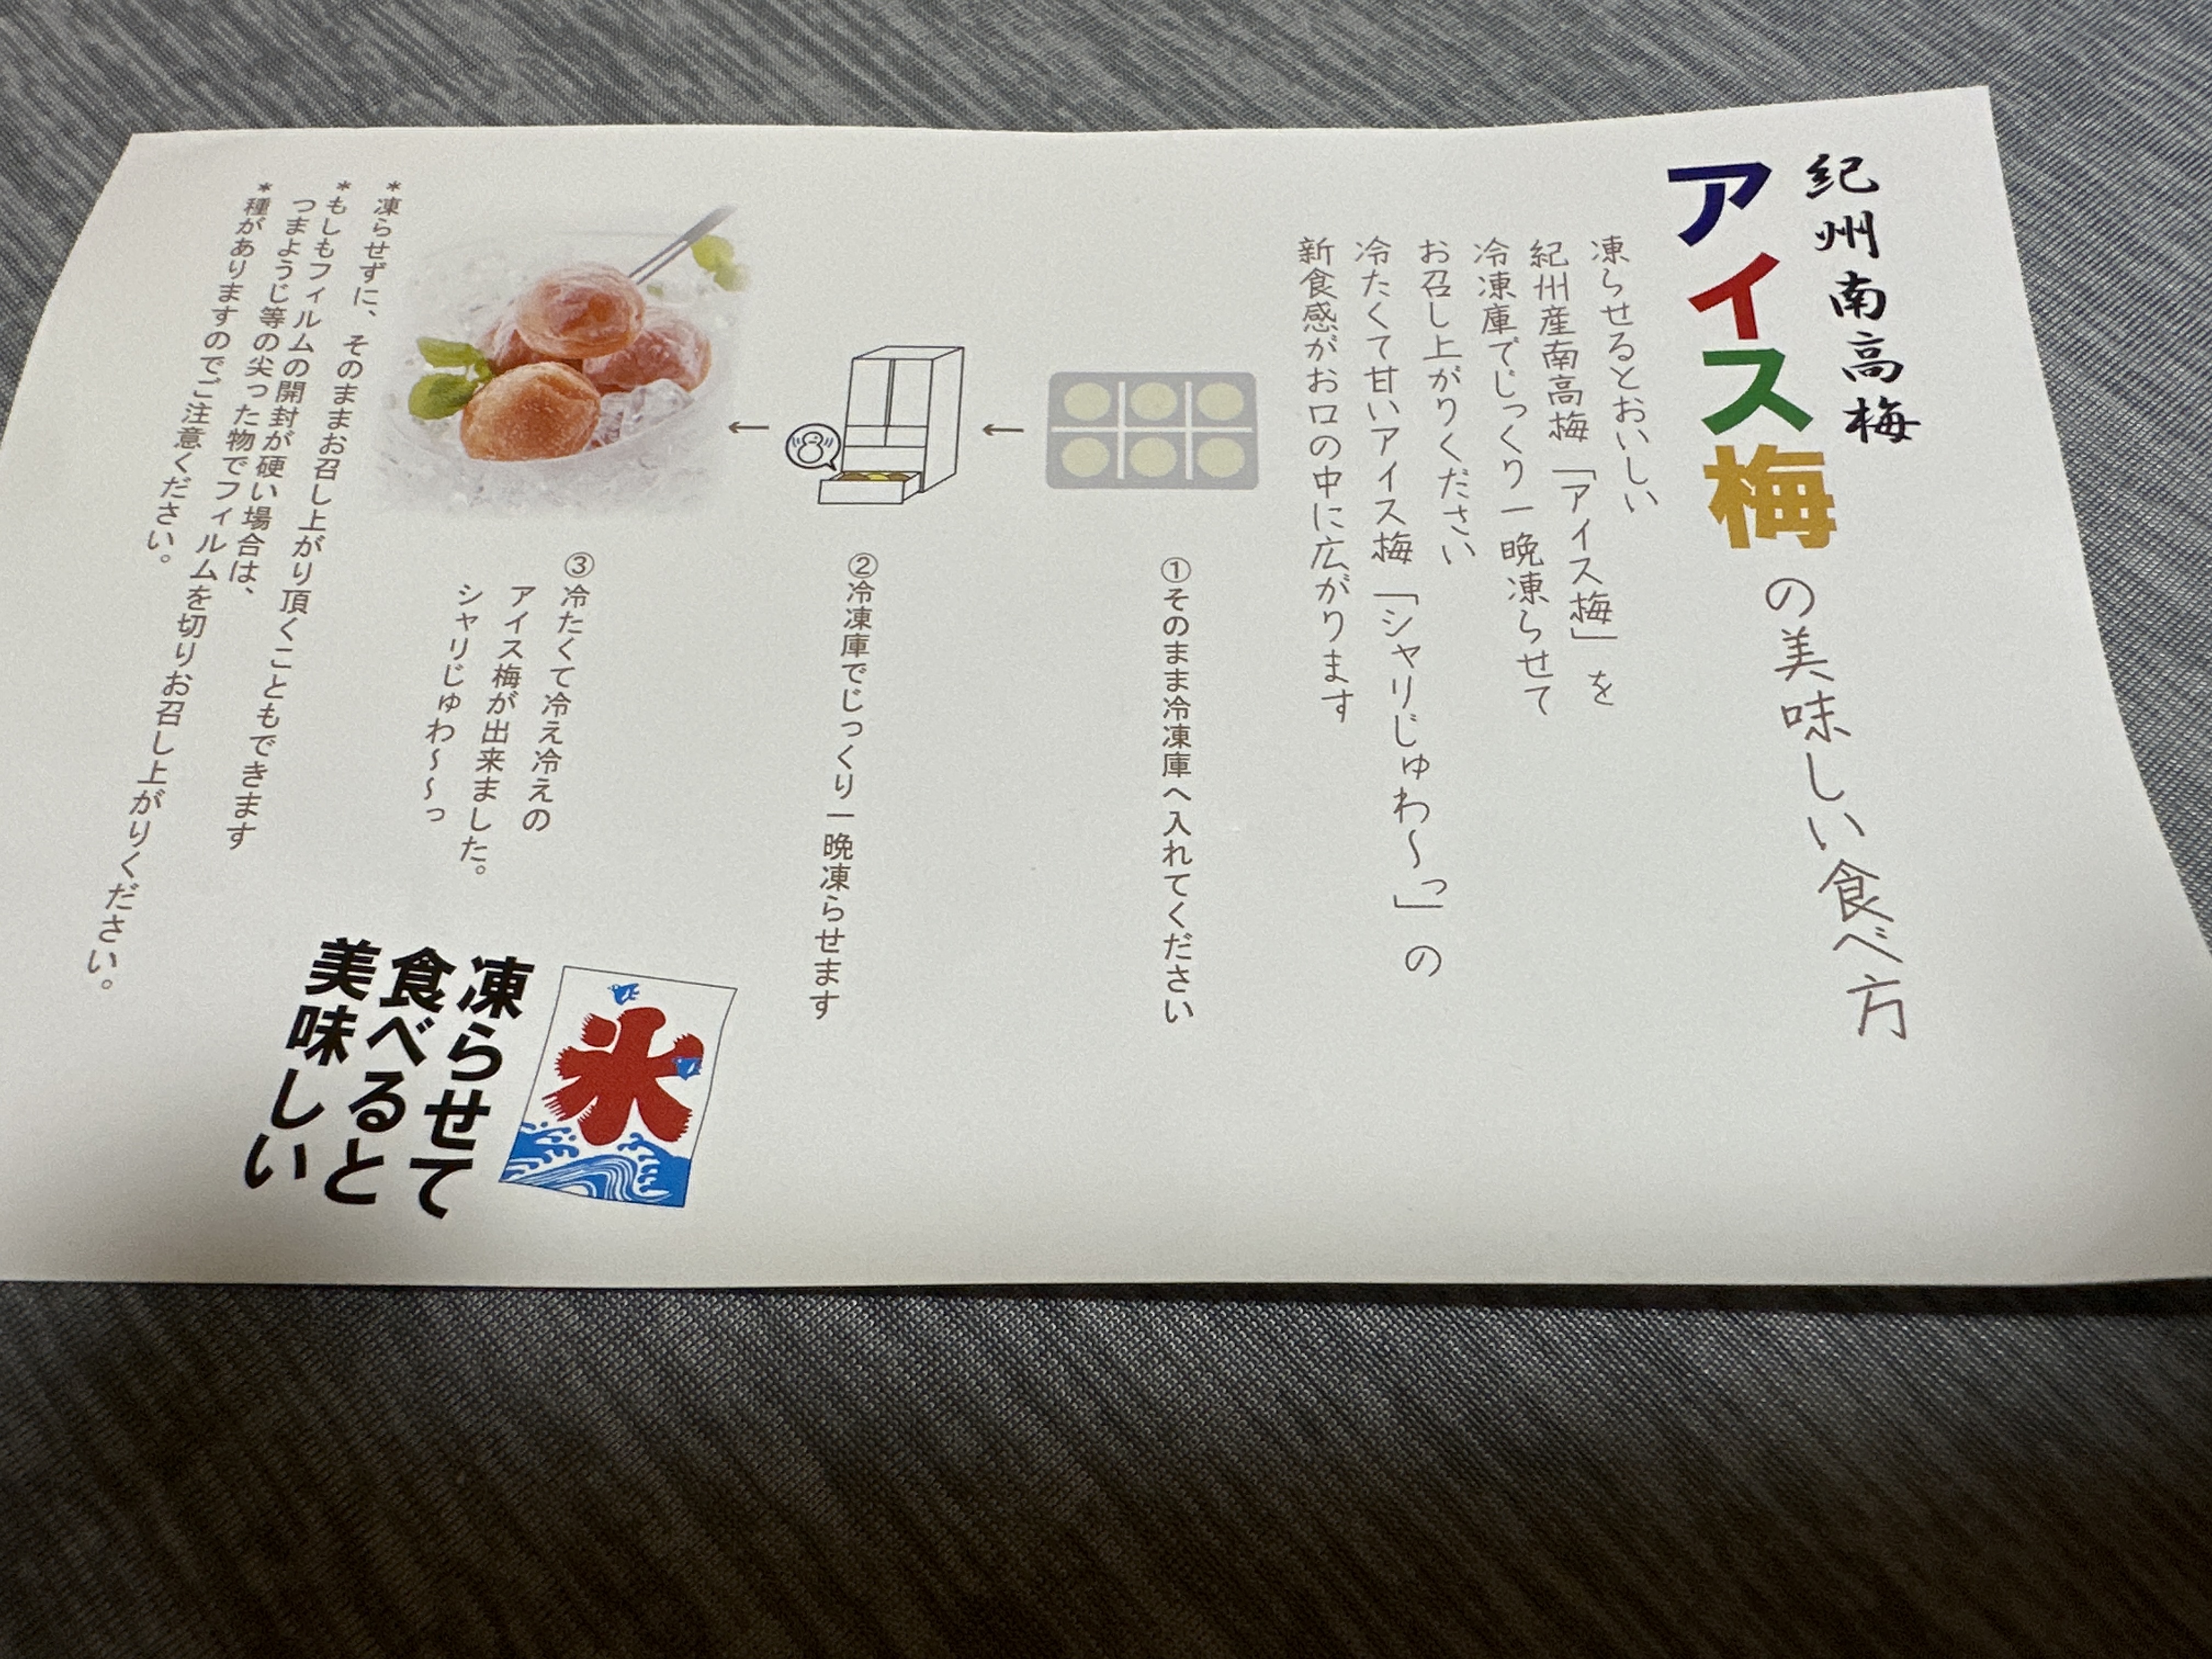 紀州南高梅
アイス梅の美味しい食べ方
凍らせるとおいしい
紀州産南高梅「アイス梅」を
冷凍庫でじっくり一晩凍らせて
お召し上がりください
冷たくて甘いアイス梅「シャリじゅわ～っ」の
新食感がお口の中に広がります
①そのまま冷凍庫へ入れてください
②冷凍庫でじっくり一晩凍らせます
③冷たくて冷え冷えの
アイス梅が出来ました。
シャリじゅわ～～っ
*凍らせずに、そのままお召し上がり頂くこともできます
*もしもフィルムの開封が硬い場合は、
つまようじ等の尖った物でフィルムを切りお召し上がりください。
*種がありますのでご注意ください。
氷
凍らせて
食べると
美味しい